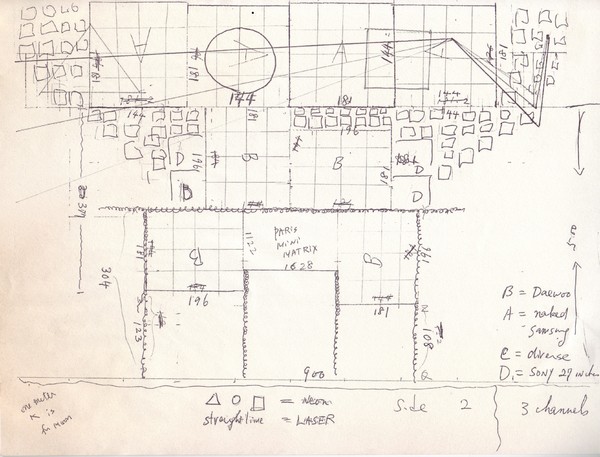 A
A
A
181
181
144
181
144
144
144
181
196
181
196
B
B
181
D
D
D
D
PARIX
MINI
MATRIX
1628
1122
181
B
196
B
181
196
304
123
108
900
B = Daewoo
A = naked
Samsung
C = diverse
D = SONY 27 inches
one meter
is
for Neon
△ ○ □ = neon
straight line = LASER
Side 2
3 channels